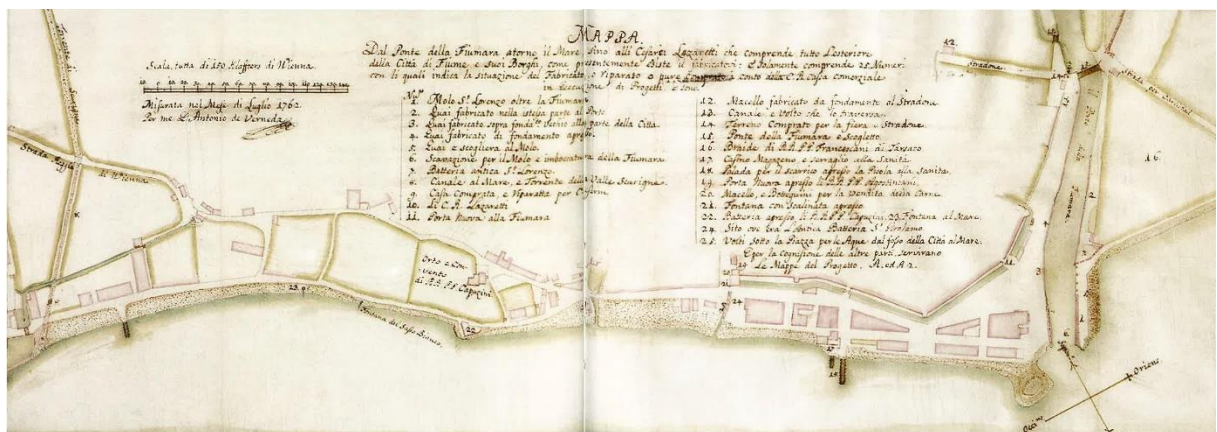 MAPPA.
Dal Ponte della Fiumara atorno il Mare sino alli Cesarei Lazaretti che comprende tutto l'esteriore
della Città di Fiume e suoi Borghi, come presentemente Esiste il fabricato; e solamente comprende 25 Numeri
con li quali indica la Situazione del Fabricato, o riparato o pure Comprato a conto della C. R. Cassa comerziale
in esecuzione di Progetti, e sono.
Scala tutta di 150 Klaffters di Wienna.
Misurata nel Mese di Luglio 1762.
Per me L. Antonio de Verneda
1. Molo Sn. Lorenzo oltre la Fiumara
2. Quai fabricato nella istessa parte al Ponte
3. Quai fabricato sopra fondti. Vechio alla parte della Città
4. Quai fabricato di fondamento apresso.
5. Quai e scogliera al Molo.
6. Scavazione per il Molo e imbocatura della Fiumara
7. Batteria antica Sn. Lorenzo.
8. Canale al Mare, e Torrente della Valle Scurigne.
9. Casa Comprata, e Riparatta per Caserm
10. Li C. R. Lazaretti
11. Porta Nuova alla Fiumara
12. Macello fabricato da fondamento al Stradone
13. Canale e Volto che lo traversa
14. Terreno Comprato per la fiera e Stradone.
15. Ponte della Fiumara e Scoglietto.
16. Braide di R. R. P. P. Francescani di Tarsato
17. Casino Magazeno e Serraglio alla Sanità
18. Palada per il scarrio apresso la Picola alla Sanità.
19. Porta Nuova apresso li R. R. P. P. Agostiniani.
20. Macello, e Bottequini per la Vendita della Carne
21. Fontana con Scalinata apresso
22. Batteria apresso li R. R. P. P. Capuzini, 23. Fontana al Mare.
24. Sito ove era l'Antica Batteria Sn. Girolamo
25. Volti sotto la Piazza per le Aque dal fosso della Città al Mare.
E per la Cognisione delle altre parti, servirano
Le Mappe del Progetto. A. ed A 2.
Strada Regia
di Wienna
Orto e Con-
vento
di R. R. P. P. Capuzini
Fontana del Sasso Bianco.
Stradone
Fiumara
16.
Oriens